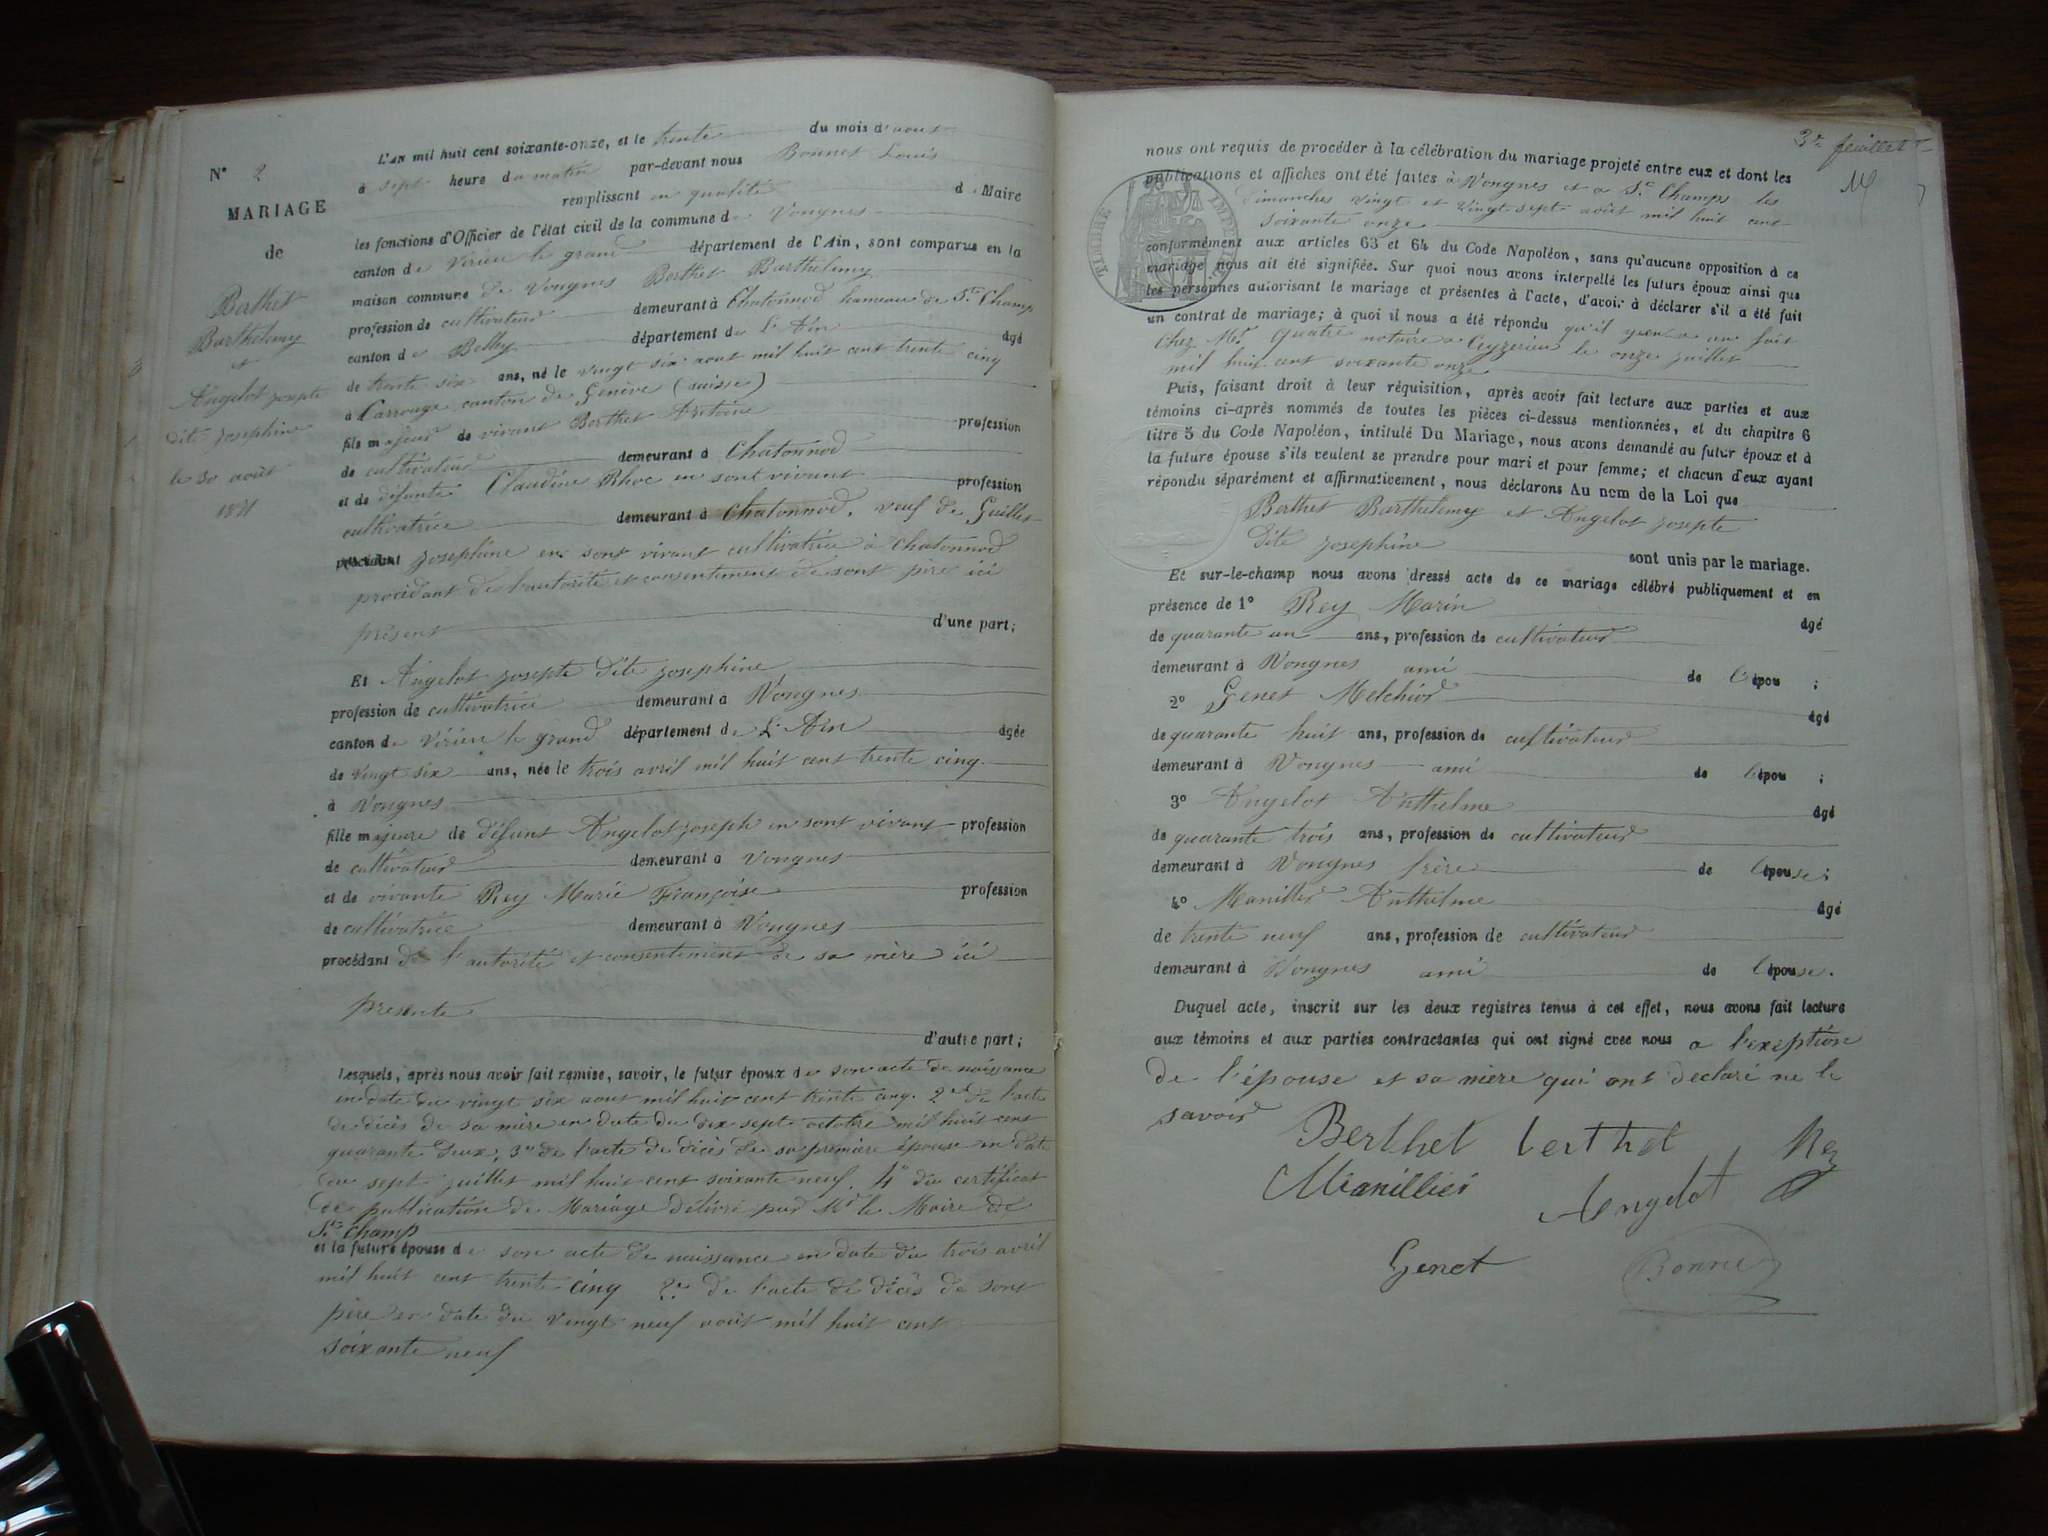 N° 2
MARIAGE
de
Berthet
Barthelemy
et
Angelot josepte
dite josephine
le 30 août
1871
L'an mil huit cent soixante-onze, et le trente du mois d'aout
à sept heure du matin par-devant nous Bonnet Louis
remplissant en qualité de Maire
les fonctions d'Officier de l'état civil de la commune de Vongnes
canton de Virieu le grand département de l'Ain, sont comparus en la
maison commune de Vongnes Berthet Barthelemy
profession de cultivateur demeurant à Chatonnod hameau de St Champ
canton de Belley département de L'Ain âgé
de trente six ans, né le vingt six aout mil huit cent trente cinq
à Carrouge canton de Genève (suisse)
fils majeur de vivant Berthet Antoine profession
de cultivateur demeurant à Chatonnod
et de défunte Claudine Rhoe en sont vivant profession
cultivatrice demeurant à Chatonnod, veuf de Guillet
procédant josephine en sont vivant cultivatrice à Chatonnod
procédant de l'autorité et consentement de sont père ici
présent d'une part;
Et Angelot josepte dite josephine
profession de cultivatrice demeurant à Vongnes
canton de Virieu le grand département de L'Ain âgée
de vingt six ans, née le trois avril mil huit cent trente cinq
à Vongnes
fille majeure de défunt Angelot joseph en sont vivant profession
de cultivateur demeurant à Vongnes
et de vivante Rey Marie Françoise profession
de cultivatrice demeurant à Vongnes
procédant de l'autorité et consentement de sa mère ici
presente
d'autre part;
Lesquels, après nous avoir fait remise, savoir, le futur époux de son acte de naissance
en date du vingt six aout mil huit cent trente cinq. 2nt de l'acte
de décès de sa mère en date du dix sept octobre mil huit cent
quarante deux, 3nt de l'acte de décès de sa première épouse en date
du sept juillet mil huit cent soixante neuf. 4° du certificat
de publication de Mariage délivré par Mr le Maire de
St Champ
et la future épouse de son acte de naissance en date du trois avril
mil huit cent trente cinq 2° de l'acte de décès de sont
père en date du vingt neuf août mil huit cent
soixante neuf
3e feuillet
nous ont requis de procéder à la célébration du mariage projeté entre eux et dont les
publications et affiches ont été faites à Vongnes et a St Champs les
dimanches vingt et vingt sept août mil huit cent
soixante onze
TIMBRE IMPERIAL
conformément aux articles 63 et 64 du Code Napoléon, sans qu'aucune opposition à ce
mariage nous ait été signifiée. Sur quoi nous avons interpellé les futurs époux ainsi que
les personnes autorisant le mariage et présentes à l'acte, d'avoir à déclarer s'il a été fait
un contrat de mariage; à quoi il nous a été répondu qu'il y en a un fait
Chez Mtr Quatre notaire a Ceyzerieu le onze juillet
mil huit cent soixante onze
Puis, faisant droit à leur réquisition, après avoir fait lecture aux parties et aux
témoins ci-après nommés de toutes les pièces ci-dessus mentionnées, et du chapitre 6
titre 5 du Code Napoléon, intitulé Du Mariage, nous avons demandé au futur époux et à
la future épouse s'ils veulent se prendre pour mari et pour femme; et chacun d'eux ayant
répondu séparément et affirmativement, nous déclarons Au nom de la Loi que
Berthet Barthelemy et Angelot josepte
dite josephine sont unis par le mariage.
Et sur-le-champ nous avons dressé acte de ce mariage célébré publiquement et en
présence de 1° Rey Marin âgé
de quarante un ans, profession de cultivateur
demeurant à Vongnes ami de l'épou ;
2° Genet Melchior âgé
de quarante huit ans, profession de cultivateur
demeurant à Vongnes ami de l'épou ;
3° Angelot Anthelme âgé
de quarante trois ans, profession de cultivateur
demeurant à Vongnes frère de l'épouse;
4° Manillier Anthelme âgé
de trente neuf ans, profession de cultivateur
demeurant à Vongnes ami de l'épouse.
Duquel acte, inscrit sur les deux registres tenus à cet effet, nous avons fait lecture
aux témoins et aux parties contractantes qui ont signé avec nous a l'exeption
de l'épouse et sa mère qui ont declaré ne le
savoir
Berthet berthet Rey
Manillier Angelot
Genet Bonnet